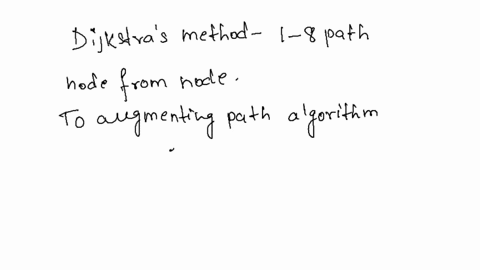 Dijkstra's method - 1-8 path
node from node.
To augmenting path algorithm